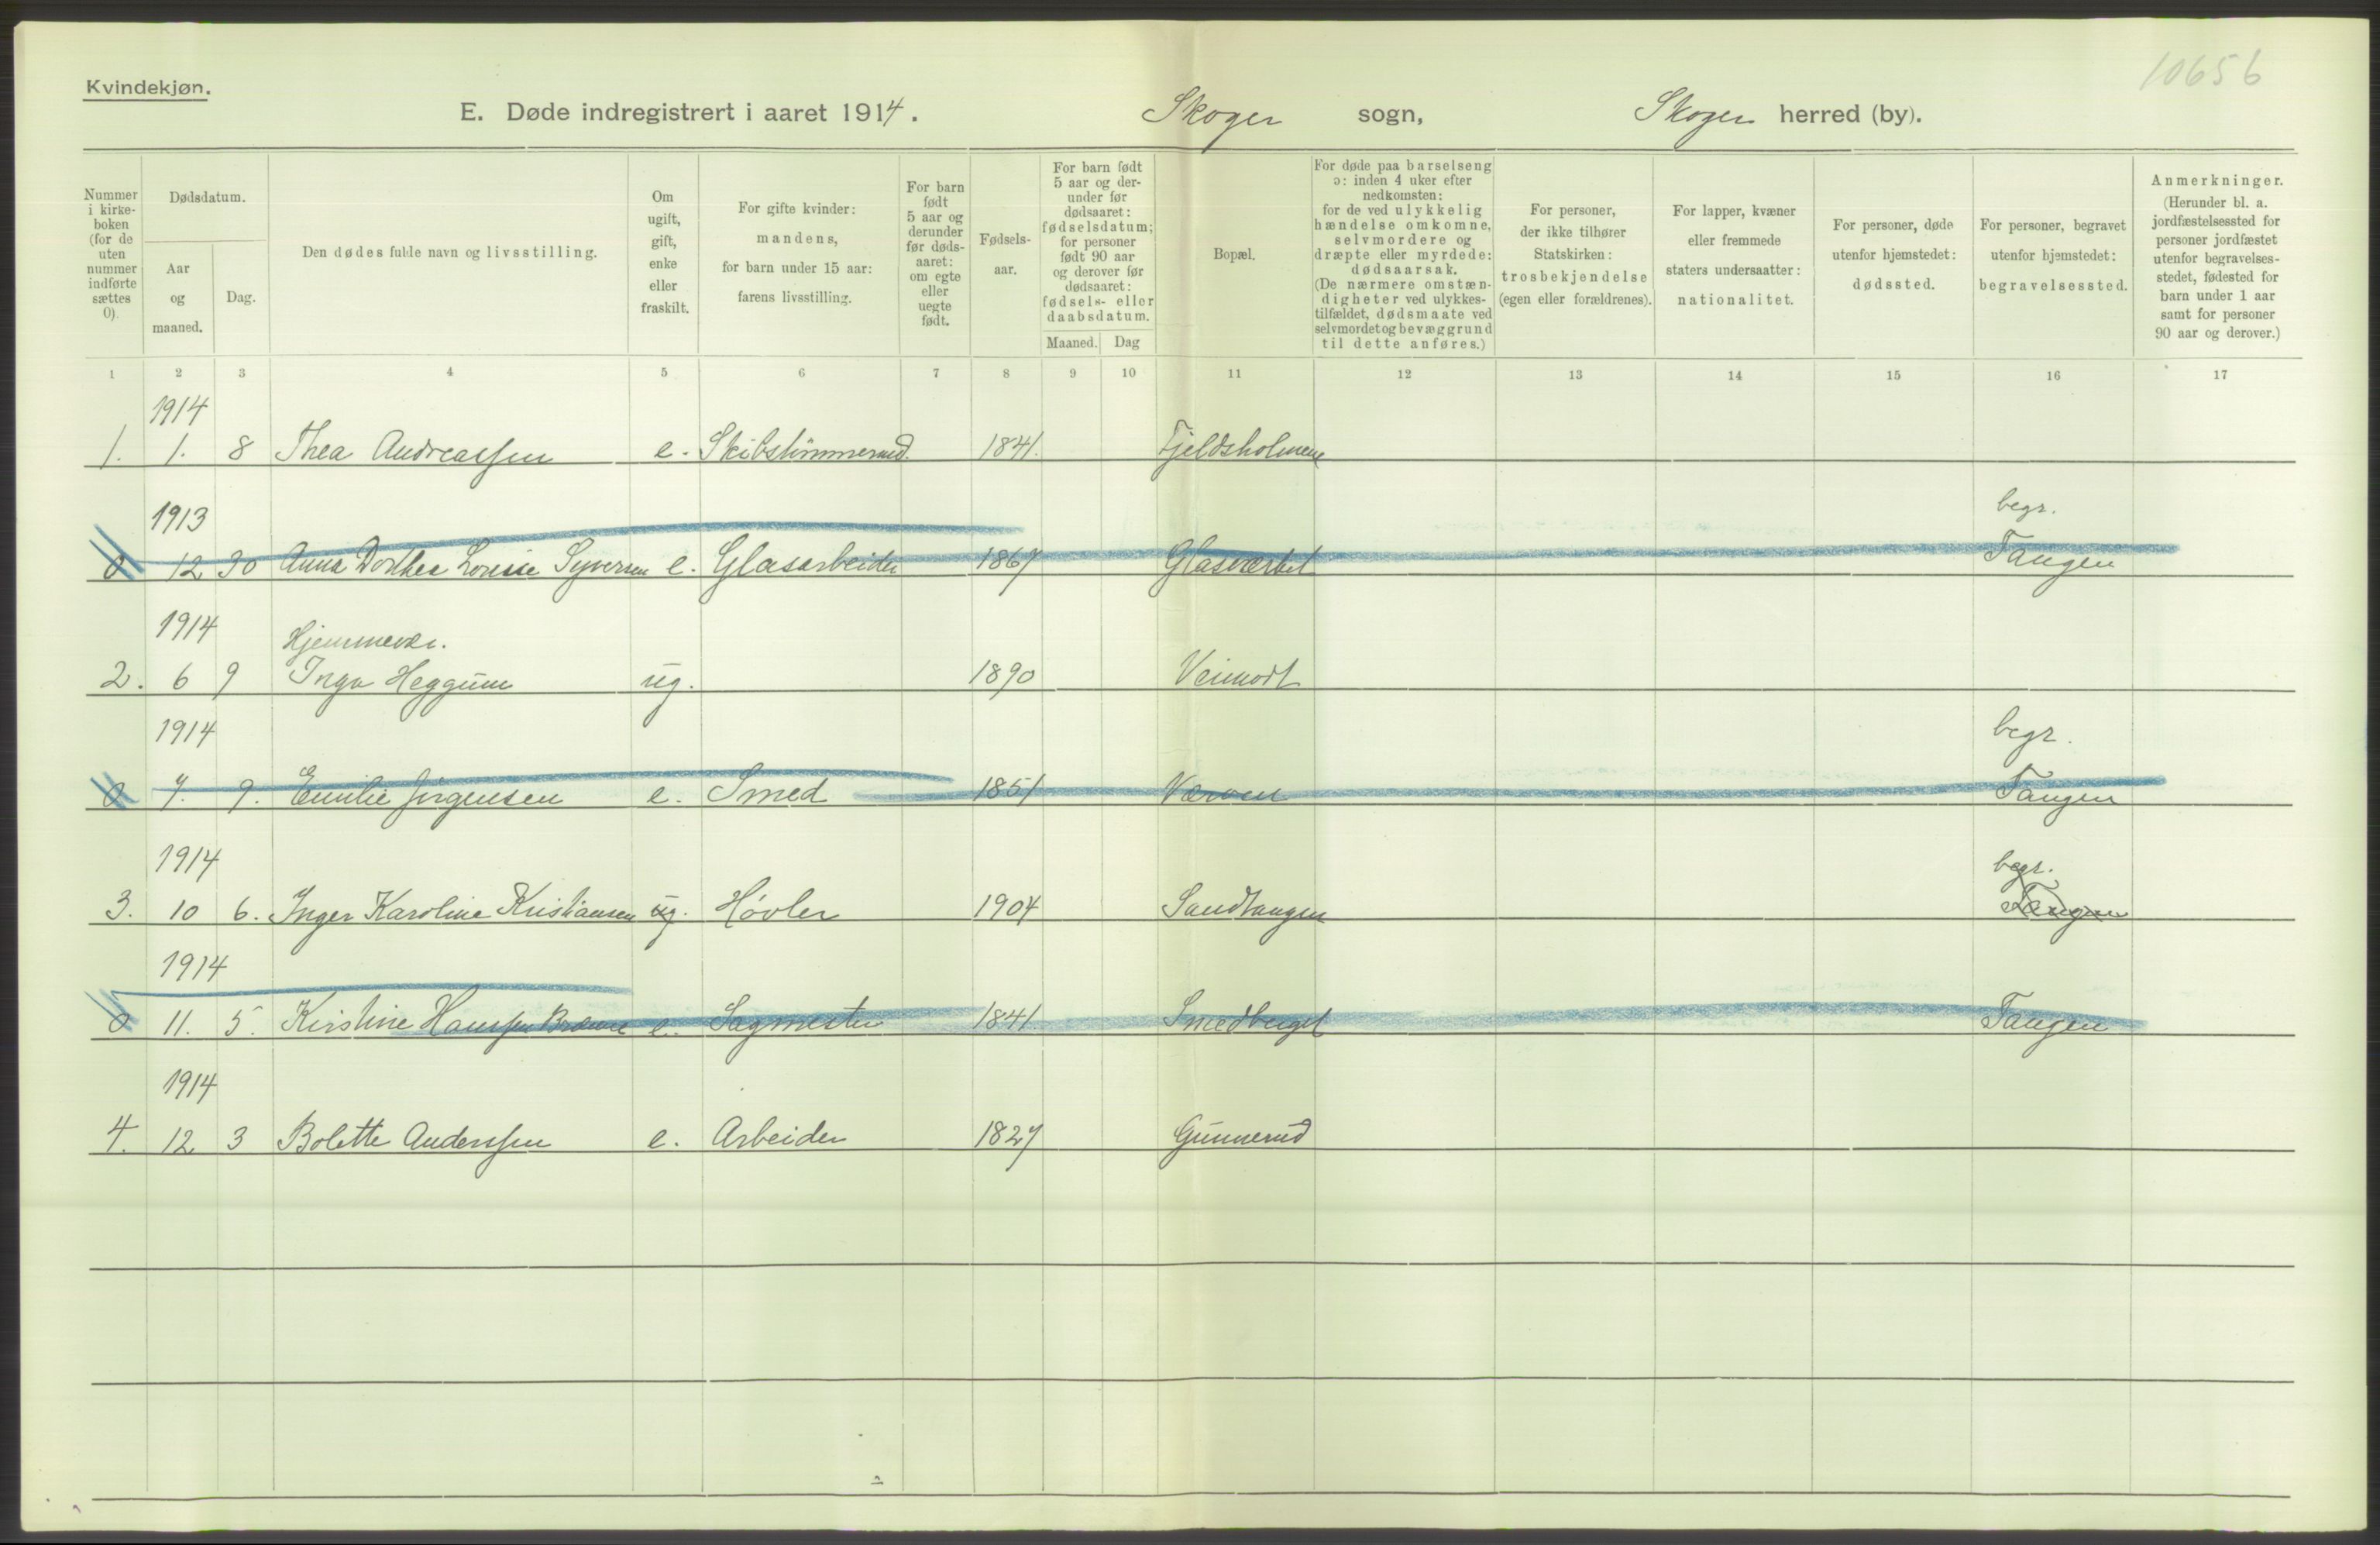 10656
Kvindekjøn.
E. Døde indregistrert i aaret 1914. Skoger sogn, Skoger herred (by).
Nummer i kirke-boken (for de uten nummer indførte sættes 0).
Dødsdatum.
Aar og maaned.
Dag.
Den dødes fulde navn og livsstilling.
Om ugift, gift, enke eller fraskilt.
For gifte kvinder: mandens, for barn under 15 aar: farens livsstilling.
For barn født 5 aar og derunder før døds-aaret: om egte eller uegte født.
Fødsels-aar.
For barn født 5 aar og der-under før dødsaaret: fødselsdatum; for personer født 90 aar og derover før dødsaaret: fødsels- eller daabsdatum.
Maaned. Dag
Bopæl.
For døde paa barselseng ɔ: inden 4 uker efter nedkomsten: for de ved ulykkelig hændelse omkomne, selvmordere og dræpte eller myrdede: dødsaarsak. (De nærmere omstæn-digheter ved ulykkes-tilfældet, dødsmaate ved selvmordet og bevæggrund til dette anføres.)
For personer, der ikke tilhører Statskirken: trosbekjendelse (egen eller forældrenes).
For lapper, kvæner eller fremmede staters undersaatter: nationalitet.
For personer, døde utenfor hjemstedet: dødssted.
For personer, begravet utenfor hjemstedet: begravelsessted.
Anmerkninger. (Herunder bl. a. jordfæstelsessted for personer jordfæstet utenfor begravelses-stedet, fødested for barn under 1 aar samt for personer 90 aar og derover.)
1 2 3 4 5 6 7 8 9 10 11 12 13 14 15 16 17
1914
1. 1. 8 Thea Andreassen e. Skibstømmermd. 1841. Fjeldsholmene
1913 begr.
0 12 30 Anna Dorthea Lovise Syversen e. Glasarbeider 1867 Glasværket Tangen
1914 Hjemmevær.
2. 6 9 Inga Heggum ug. 1890 Veimodt
1914 begr.
0 7. 9. Emilie Jørgensen e. Smed 1851 Værven Tangen
1914 begr.
3. 10 6. Inger Karoline Kristiansen ug. Høvler 1904 Sandtangen Tangen
1914
0 11. 5. Kirstine Hanssen e. Sagmester 1841 Smedberget Tangen
1914
4. 12 3 Bolette Anderssen e. Arbeider 1827 Gunnerud